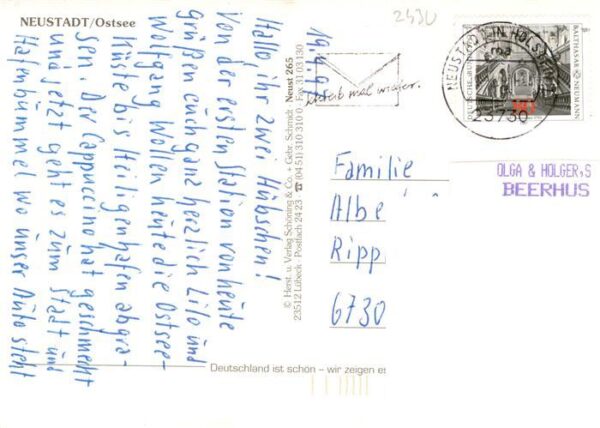 NEUSTADT/Ostsee
19.4.97
Hallo ihr zwei Hübschen!
Von der ersten Station von heute
grüßen euch ganz herzlich Lilo und
Wolfgang. Wollen heute die Ostsee-
küste bis Heiligenhafen abgra-
sen. Der Cappuccino hat geschmeckt
und jetzt geht es zum Stadt und
Hafenbummel wo unser Auto steht
© Herst. u. Verlag Schöning & Co. + Gebr. Schmidt · Neust 265
23512 Lübeck · Postfach 24 23 · ☎ (04 51) 310 310 0 · Fax 31 03 130
Schreib mal wieder.
NEUSTADT IN HOLSTEIN
23730
BALTHASAR NEUMANN
Familie
Albe
Ripp
6730
OLGA & HOLGER,S
BEERHUS
Deutschland ist schön – wir zeigen es